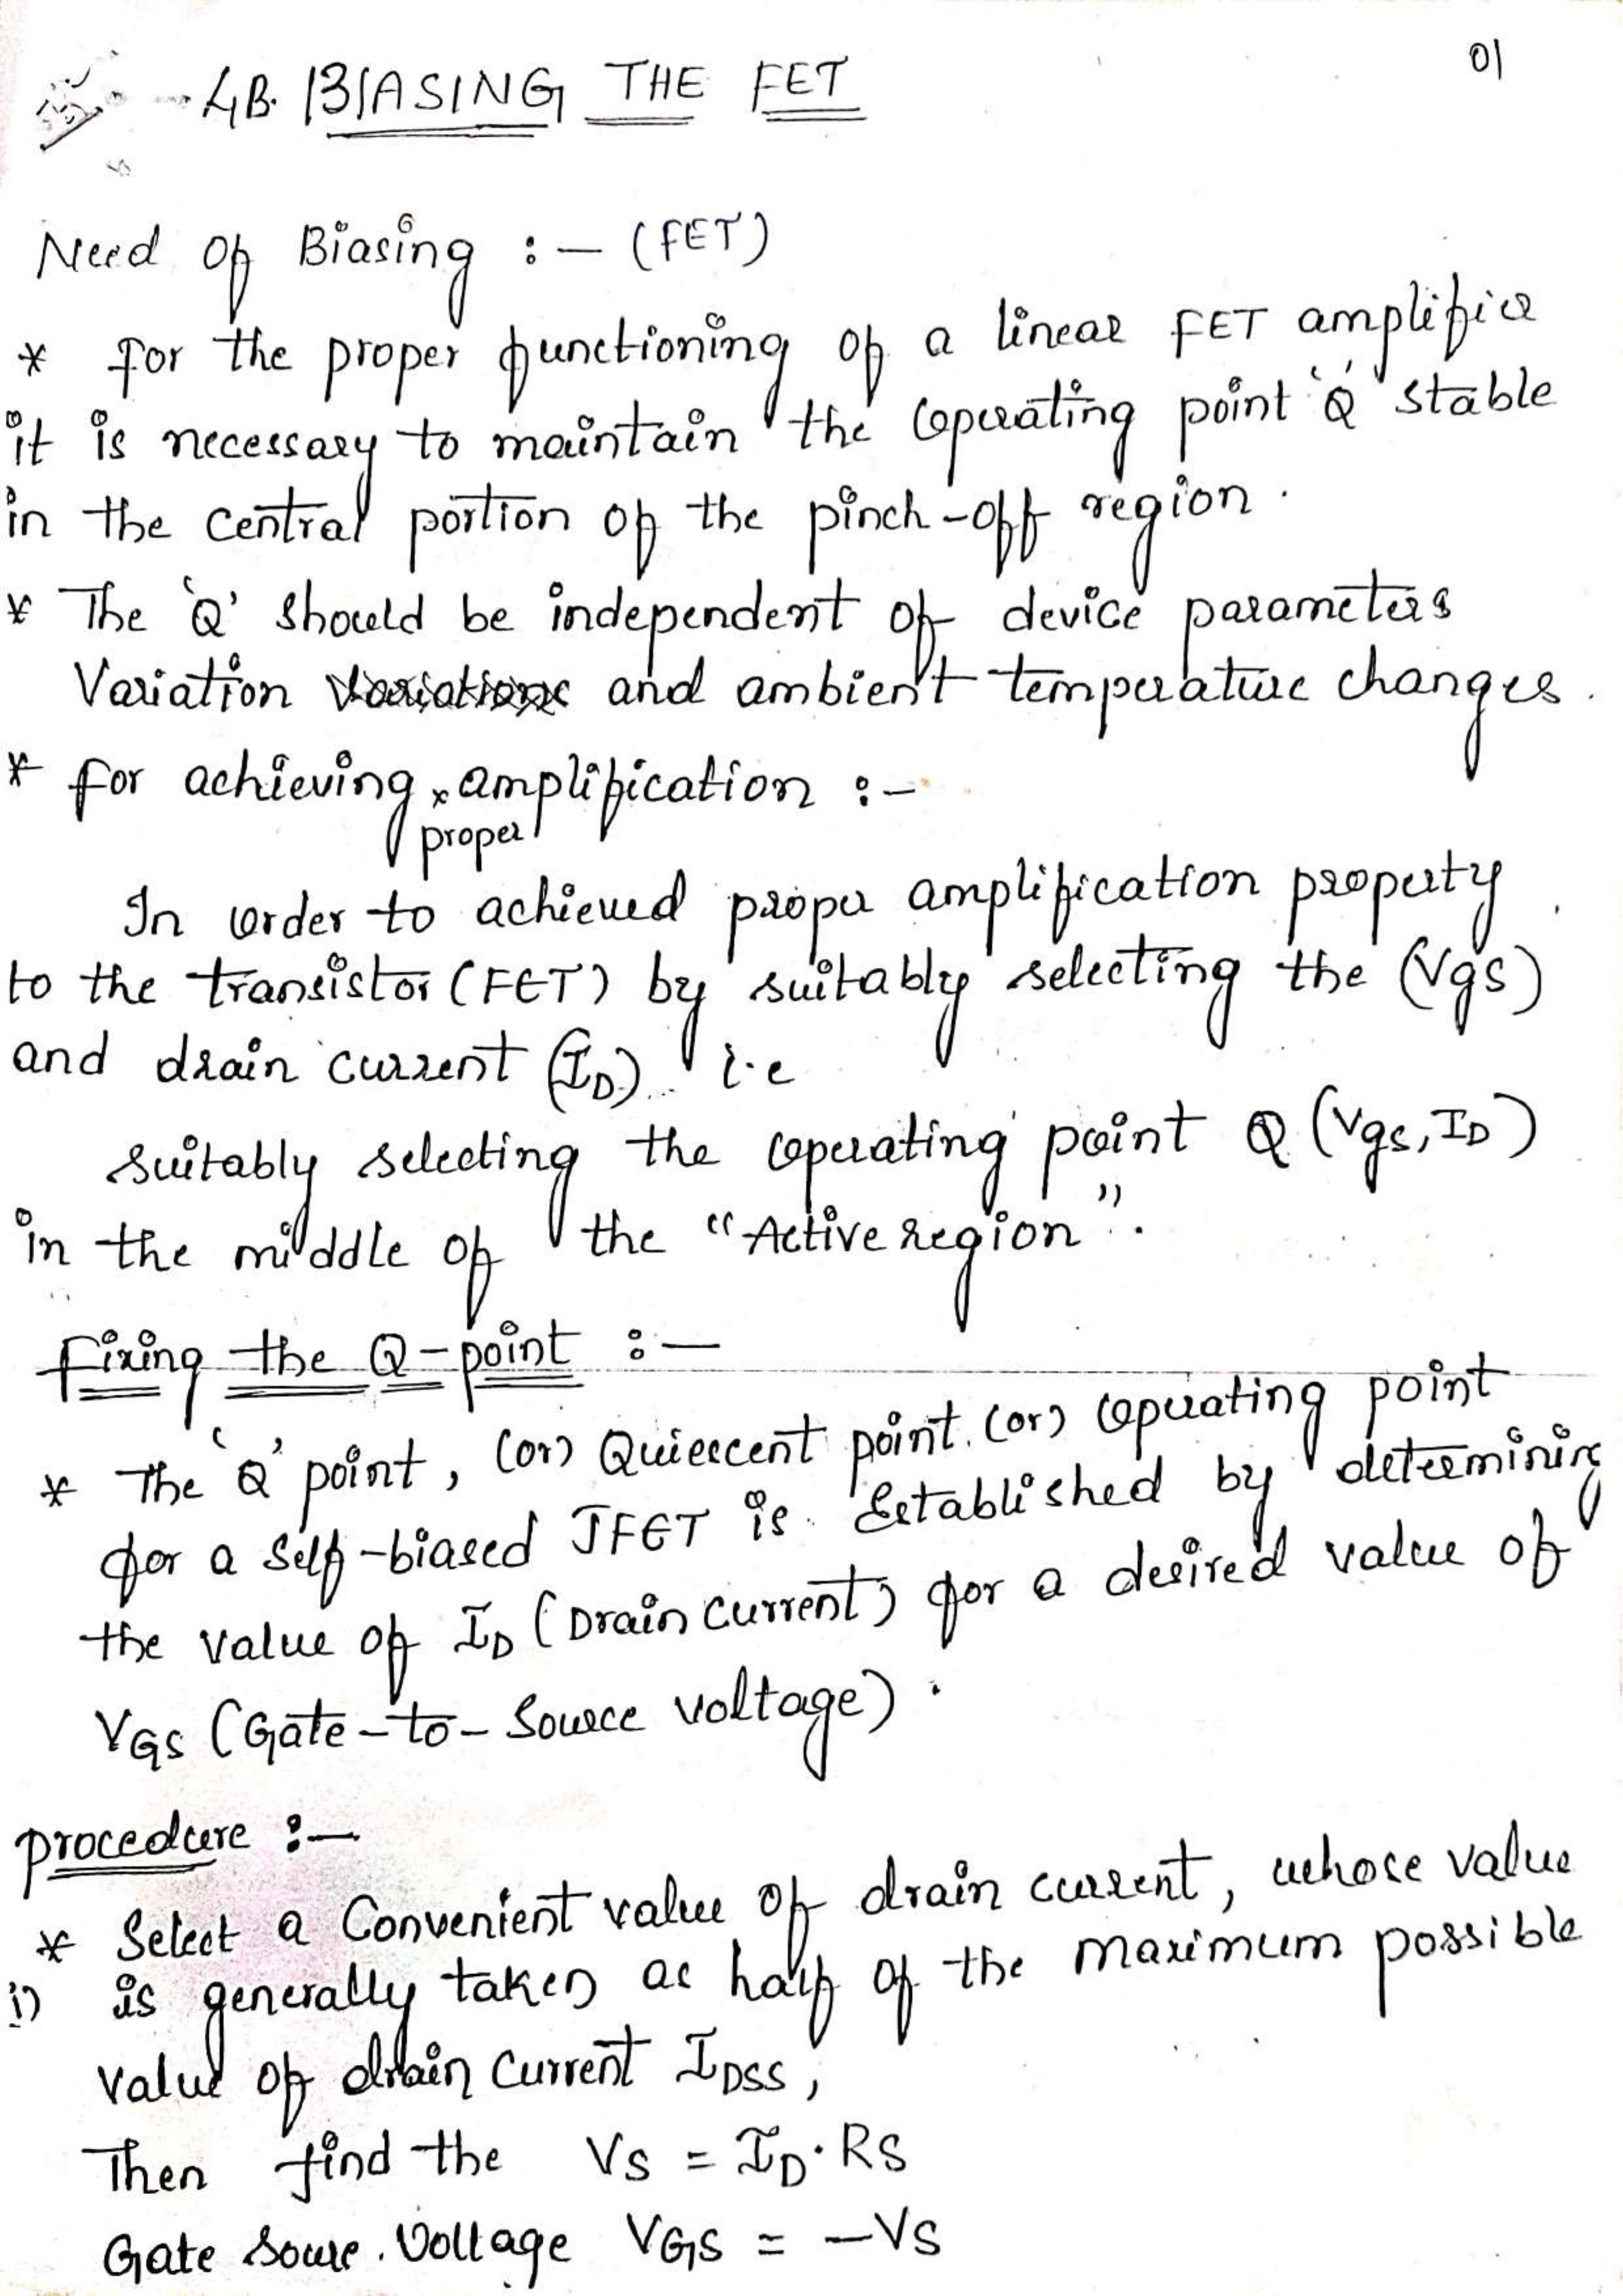 01
4B. BIASING THE FET
Need of Biasing :- (FET)
* For the proper functioning of a linear FET amplifier
it is necessary to maintain the operating point 'Q' stable
in the central portion of the pinch-off region.
* The 'Q' should be independent of device parameters
Variation and ambient temperature changes.
* for achieving proper amplification :-
In order to achieved proper amplification property
to the transistor (FET) by suitably selecting the (Vgs)
and drain current (ID) i.e
suitably selecting the operating point Q (Vgs, ID)
in the middle of the "Active region".
Fixing the Q-point :-
* The 'Q' point, (or) Quiescent point (or) operating point
for a self-biased JFET is Established by determining
the value of ID (Drain current) for a desired value of
VGS (Gate-to-Source voltage).
procedure :-
* Select a Convenient value of drain current, whose value
i) is generally taken as half of the maximum possible
value of drain current IDSS,
Then find the VS = ID. RS
Gate Soure. Voltage VGS = -VS